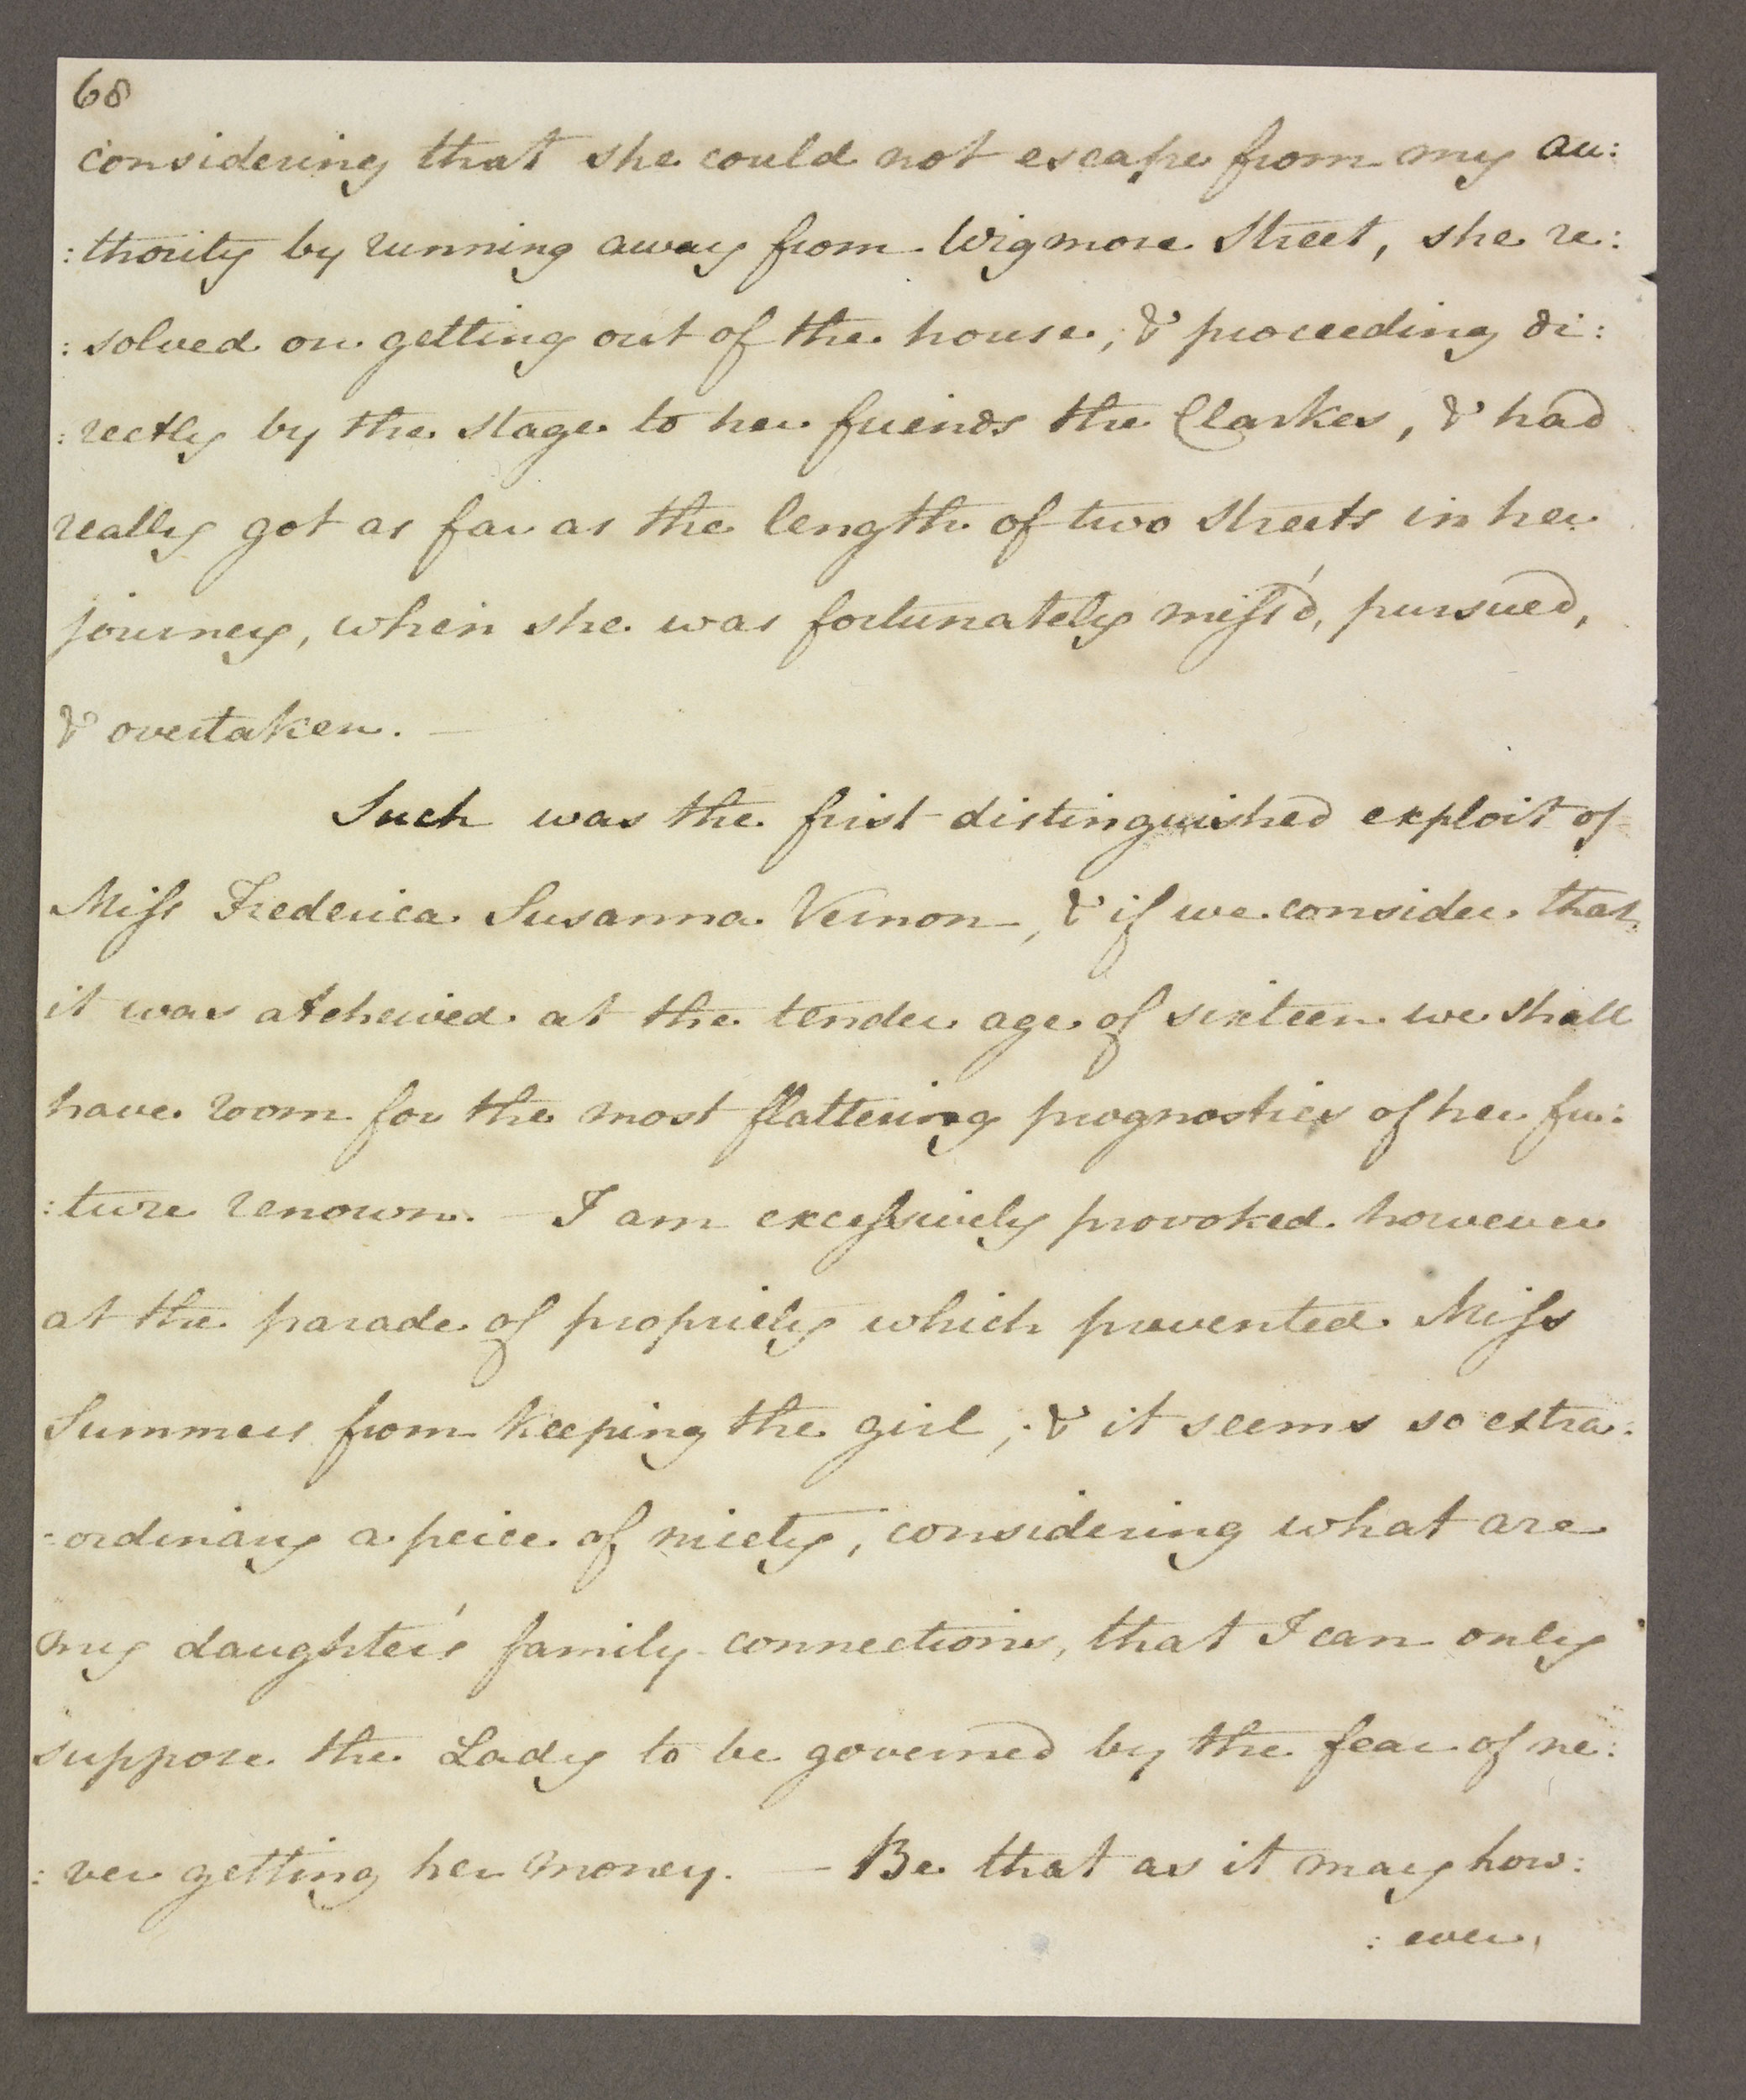 68
considering that she could not escape from my au:
:thority by running away from Wigmore Street, she re:
:solved on getting out of the house, & proceeding di:
:rectly by the stage to her friends the Clarkes, & had
really got as far as the length of two streets in her
journey, when she was fortunately miss'd, pursued,
& overtaken. —
Such was the first distinguished exploit of
Miss Frederica Susanna Vernon, & if we consider that
it was atcheived at the tender age of sixteen we shall
have room for the most flattering prognostics of her fu:
:ture renown. — I am excessively provoked however
at the parade of propriety which prevented Miss
Summers from keeping the girl; & it seems so extra:
:ordinary a peice of nicety, considering what are
my daughter's family connections, that I can only
suppose the Lady to be governed by the fear of ne:
:ver getting her money. — Be that as it may how:
:ever,